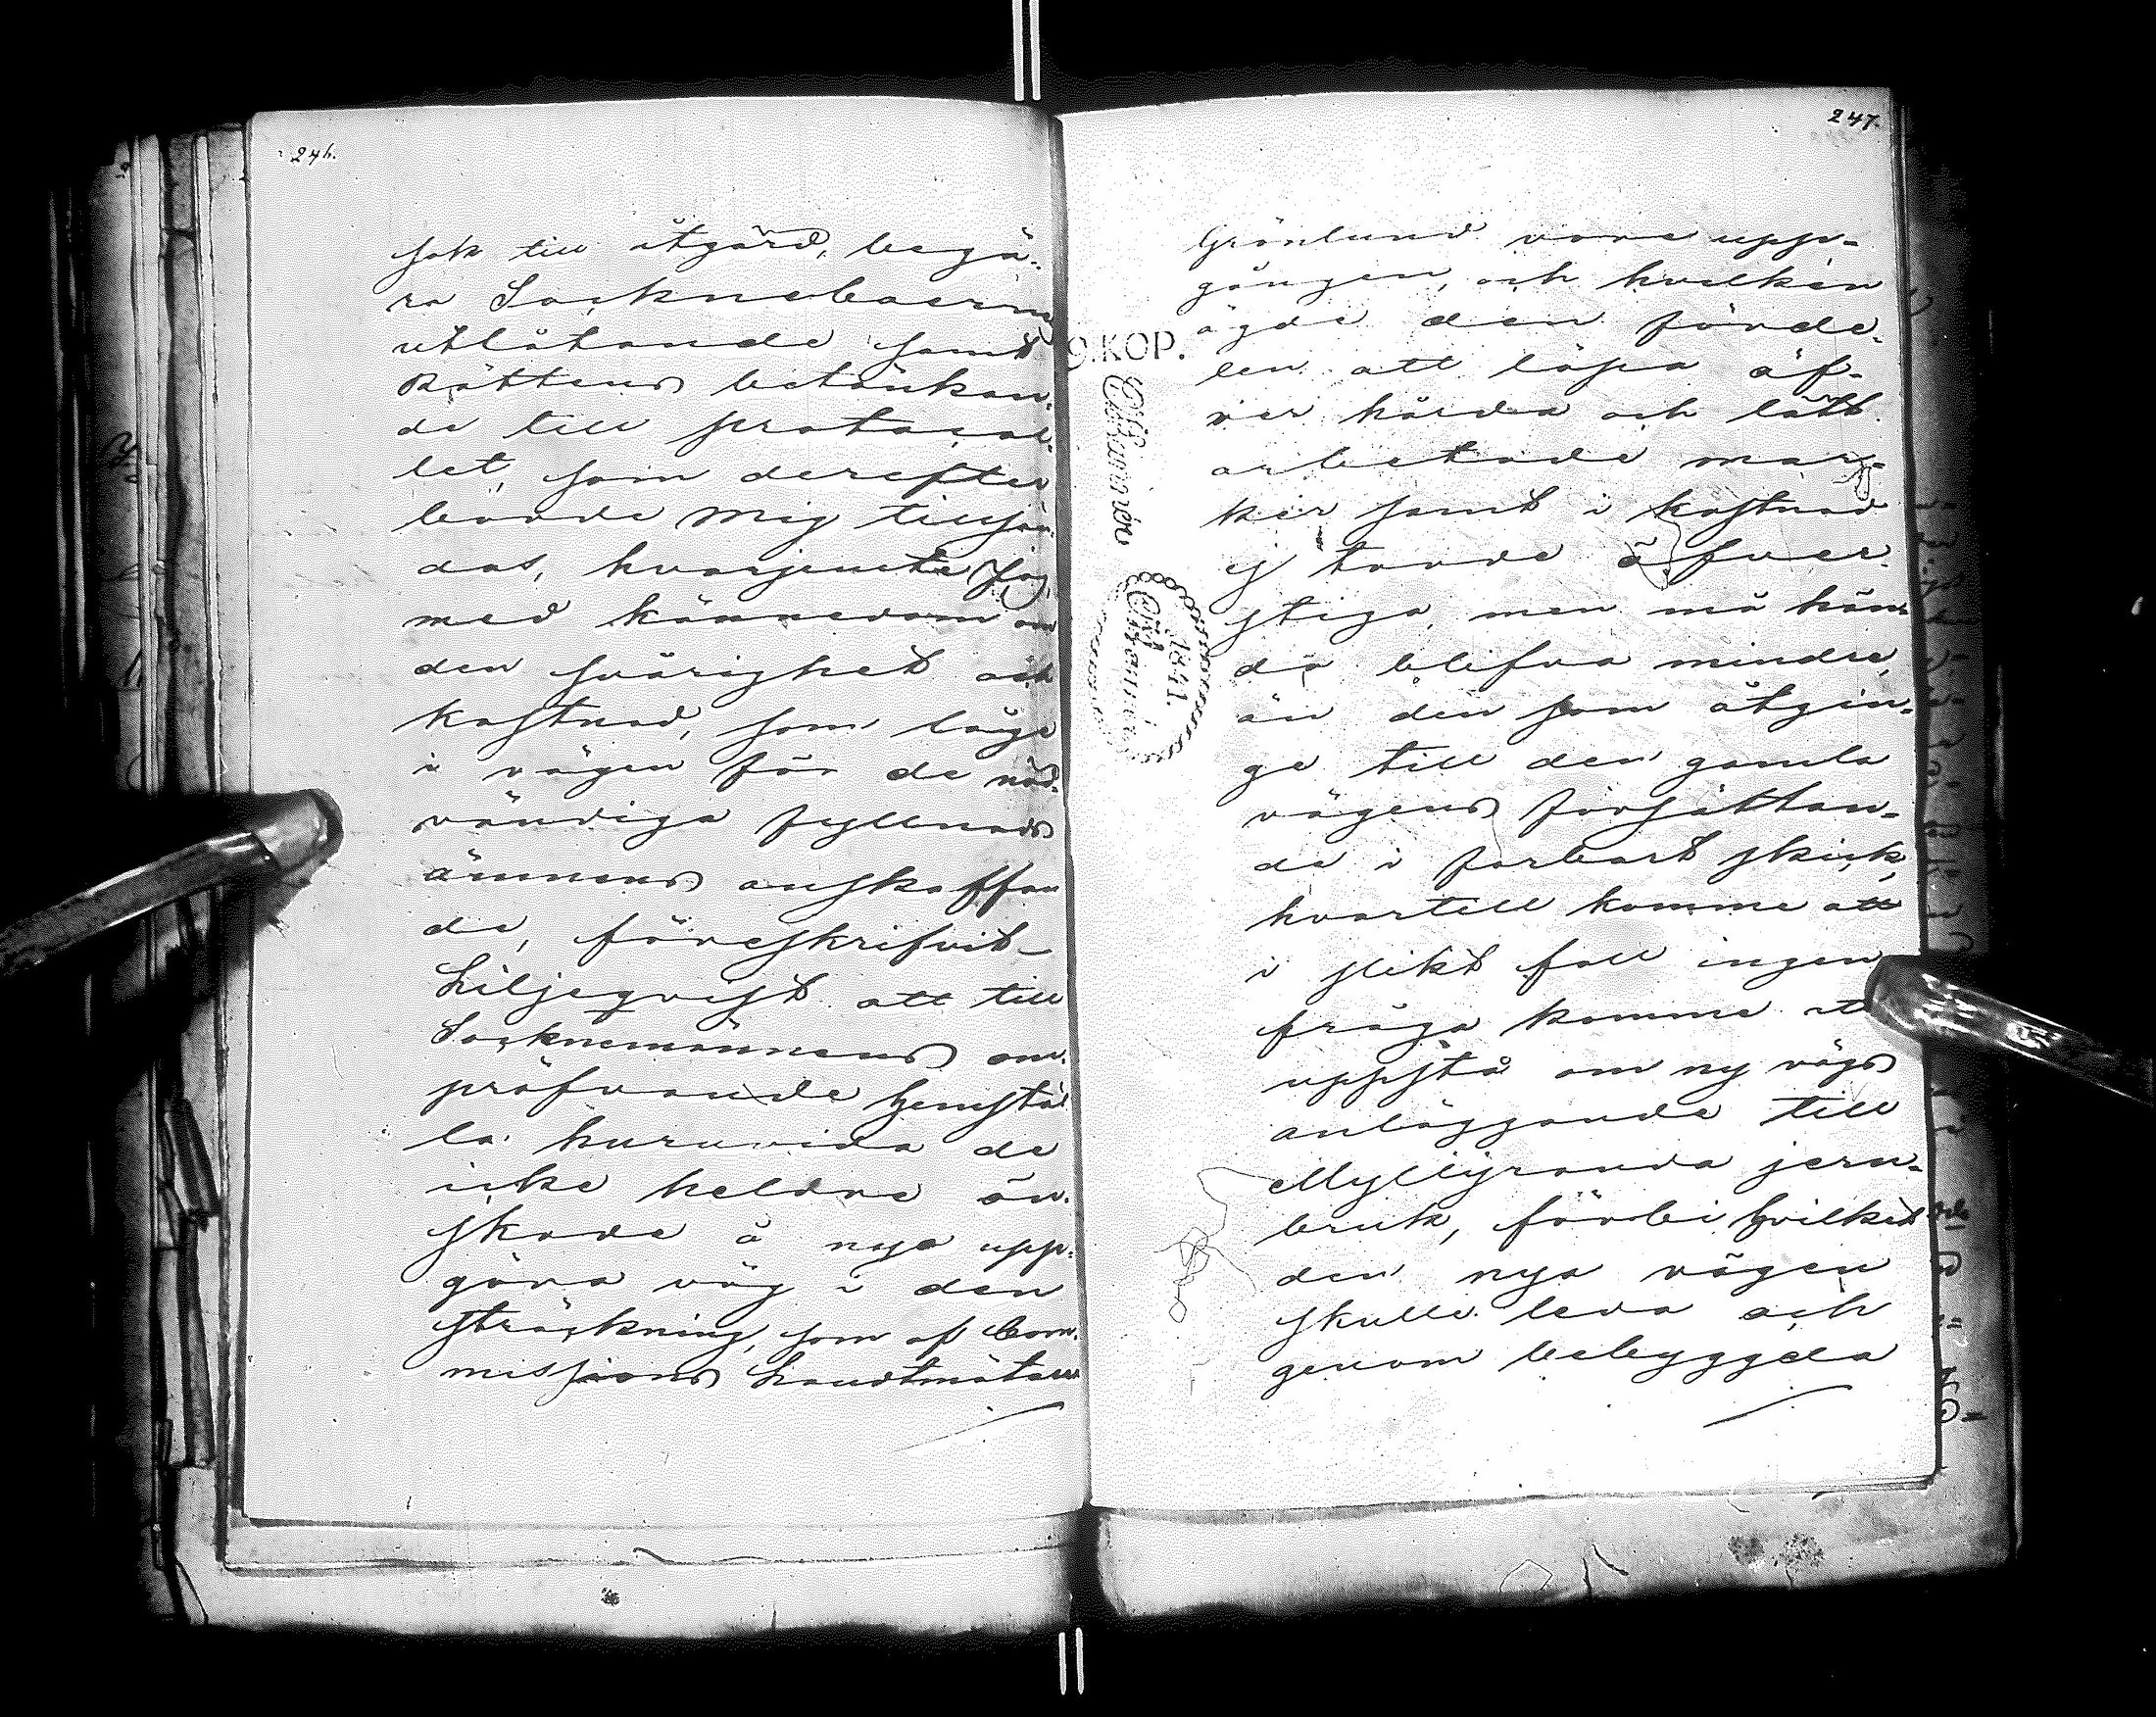 246.
sak till åtgärd, begä-
ra Sockneboerne
utlåtande samt
Rättens betänkan-
de till protocol-
let, som derefter
borde mig tillsän-
das, hvarjemte Jag,
med kännedom om
den svårighet och
kostnad, som låge
i vägen för de nöd-
vändiga fyllnads
ämnens anskaffan
de, föreskrifvit
Liljeqvist att till
Socknemännens om-
pröfvande hemstäl
la huruvida de
icke heldre ön-
skade å nyo upp-
göra väg i den
sträckning, som af Com-
missions Landtmätaren
247.
Grönlund vore upp-
gången, och hvilken
ägde den förde-
len att löpa öf-
ver hårda och lätt
arbetade mar-
ker samt i kostnad
ej torde öfver-
stiga, men må hän-
da blifva mindre,
än den som åtgin-
ge till den gamla
vägens försättan-
de i farbart skick,
hvartill komme att
i slikt fall ingen
fråga komme att
uppstå om ny vägs
anläggande till
Myllyranda jern-
bruk, förbi hvilket
den nya vägen
skulle leda och
genom bebyggda
9.KOP.
1841.